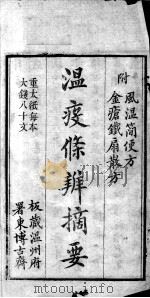 附
風溫簡便方
金瘡鐵扇散方
板藏溫州府
署東博古齋
溫疫條辨摘要
重太紙每本
大錢八十文